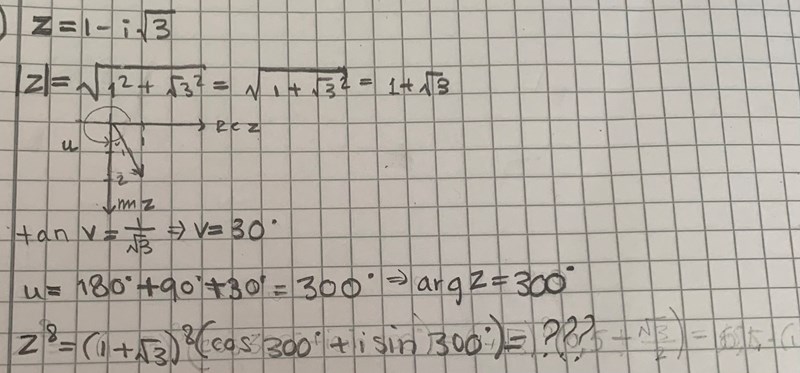 z = 1 - i√3
|z| = √(1² + √3²) = √(1 + √3²) = 1 + √3
u
v
Re z
z
Im z
tan v = 1/√3 ⇒ v = 30°
u = 180° + 90° + 30° = 300° ⇒ arg z = 300°
z⁸ = (1 + √3)⁸ (cos 300° + i sin 300°) = ???